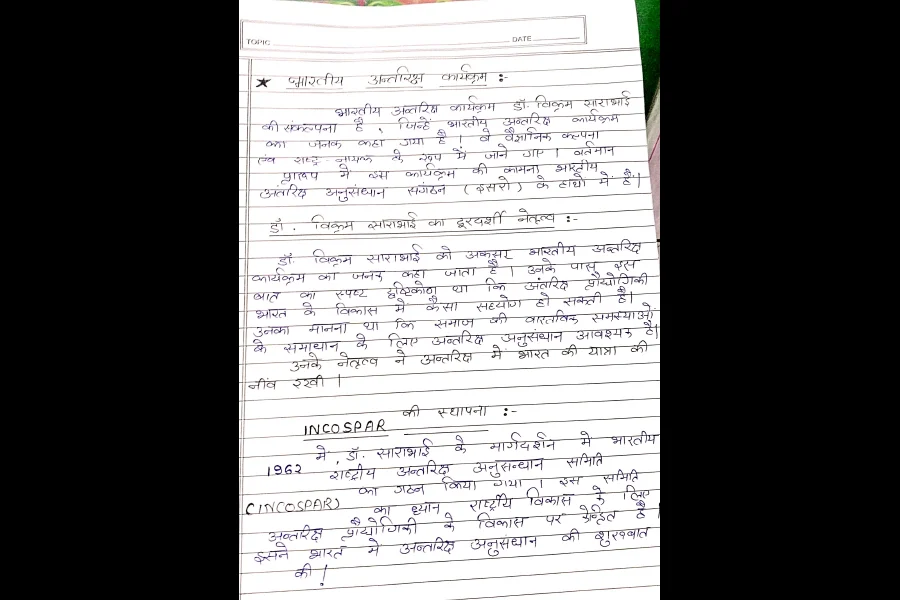 TOPIC DATE
★ भारतीय अन्तरिक्ष कार्यक्रम :-
भारतीय अन्तरिक्ष कार्यक्रम डॉ. विक्रम साराभाई
की संकल्पना है , जिन्हें भारतीय अन्तरिक्ष कार्यक्रम
का जनक कहा गया है । वे वैज्ञानिक कल्पना
एवं राष्ट्र-नायक के रूप में जाने गए । वर्तमान
प्रारूप में इस कार्यक्रम की कामना भारतीय
अंतरिक्ष अनुसंधान संगठन (इसरो) के हाथो में है।
डॉ. विक्रम साराभाई का दूरदर्शी नेतृत्व :-
डॉ. विक्रम साराभाई को अकसर भारतीय अन्तरिक्ष
कार्यक्रम का जनक कहा जाता है । उनके पास इस
बात का स्पष्ट दृष्टिकोण था कि अंतरिक्ष प्रौद्योगिकी
भारत के विकास में कैसा सहयोग हो सकती है।
उनका मानना था कि समाज की वास्तविक समस्याओं
के समाधान के लिए अन्तरिक्ष अनुसंधान आवश्यक है।
उनके नेतृत्व ने अन्तरिक्ष में भारत की यात्रा की
नींव रखी ।
INCOSPAR की स्थापना :-
1962 में , डॉ. साराभाई के मार्गदर्शन में भारतीय
राष्ट्रीय अन्तरिक्ष अनुसन्धान समिति
(INCOSPAR) का गठन किया गया । इस समिति
का ध्यान राष्ट्रीय विकास के लिए
अन्तरिक्ष प्रौद्योगिकी के विकास पर केन्द्रित है ।
इसने भारत में अन्तरिक्ष अनुसंधान की शुरुवात
की !